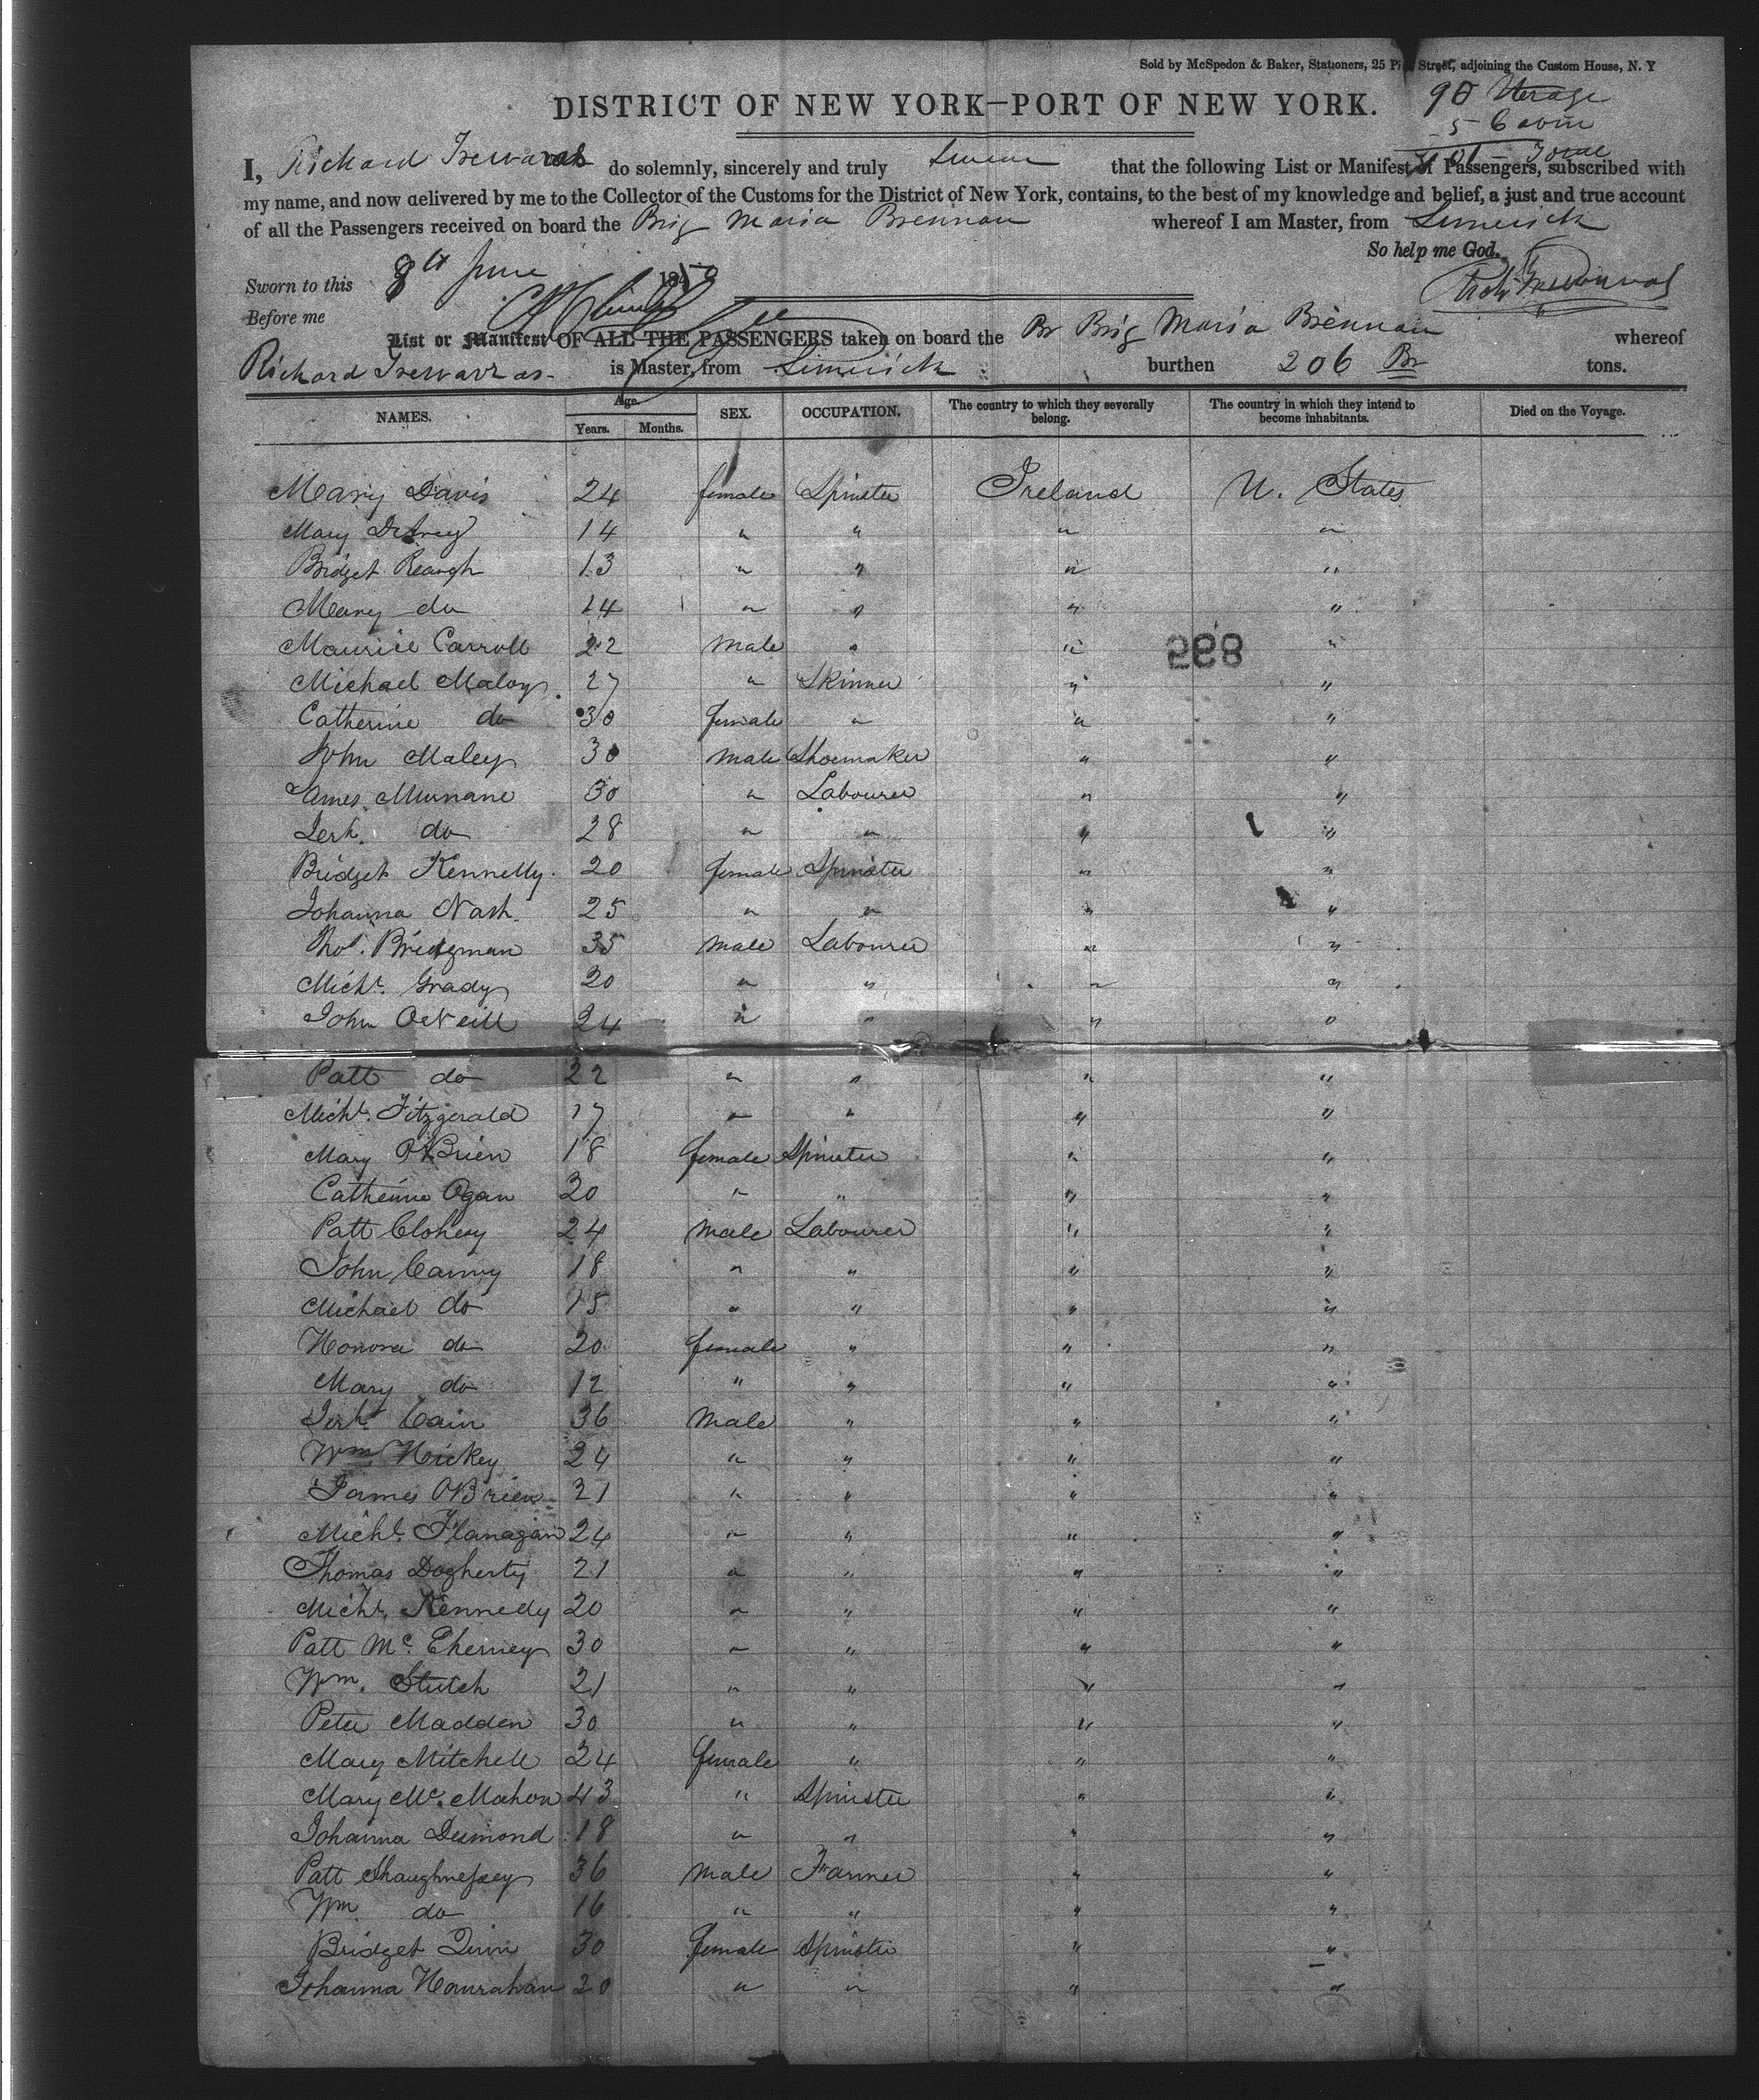 Sold by McSpedon & Baker, Stationers, 25 Street, adjoining the Custom House, N. Y
DISTRICT OF NEW YORK—PORT OF NEW YORK.
Sterage
5 Cabin
101 - Total
I, Richard do solemnly, sincerely and truly Swear that the following List or Manifest of Passengers, subscribed with
my name, and now delivered by me to the Collector of the Customs for the District of New York, contains, to the best of my knowledge and belief, a just and true account
of all the Passengers received on board the Brig Maria Brennan whereof I am Master, from Limerick
So help me God.
Sworn to this 8th June 18
Before me
List or Manifest OF ALL THE PASSENGERS taken on board the Br Brig Maria Brennan whereof
Richard is Master, from Limerick burthen 206 Br tons.
NAMES. Age. Years. Months. SEX. OCCUPATION. The country to which they severally belong. The country in which they intend to become inhabitants. Died on the Voyage.
Mary Davis 24 female Spinster Ireland U. States
Mary 14 " " " "
Bridget Reaugh 13 " " " "
Mary do 14 " " " "
Maurice Carroll 22 male " " "
898
Michael Maloy 27 " Skinner " "
Catherine do 30 female " " "
John Maley 30 male Shoemaker " "
James Murnane 30 " Labourer " "
Jerh. do 28 " " " "
Bridget Kennelly 20 female Spinster " "
Johanna Nash 25 " " " "
Thos. Bridgman 35 male Labourer " "
Michl. Grady 20 " " " "
John ONeill 24 " " " "
Patt do 22 " " " "
Michl. Fitzgerald 17 " " " "
Mary OBrien 18 female Spinster " "
Catherine Ogan 20 " " " "
Patt Clohesy 24 male Labourer " "
John Canny 18 " " " "
Michael do 15 " " " "
Honora do 20 female " " "
Mary do 12 " " " "
Jerh. Cain 36 male " " "
Wm. Hickey 24 " " " "
James OBrien 21 " " " "
Michl. Flanagan 24 " " " "
Thomas Dogherty 21 " " " "
Michl. Kennedy 20 " " " "
Patt Mc. Eherney 30 " " " "
Wm. Stutch 21 " " " "
Peter Madden 30 " " " "
Mary Mitchell 24 female " " "
Mary Mc. Mahon 43 " Spinster " "
Johanna Desmond 18 " " " "
Patt Shaughnessey 36 male Farmer " "
Wm. do 16 " " " "
Bridget Quin 30 female Spinster " "
Johanna Hourahan 20 " " " "